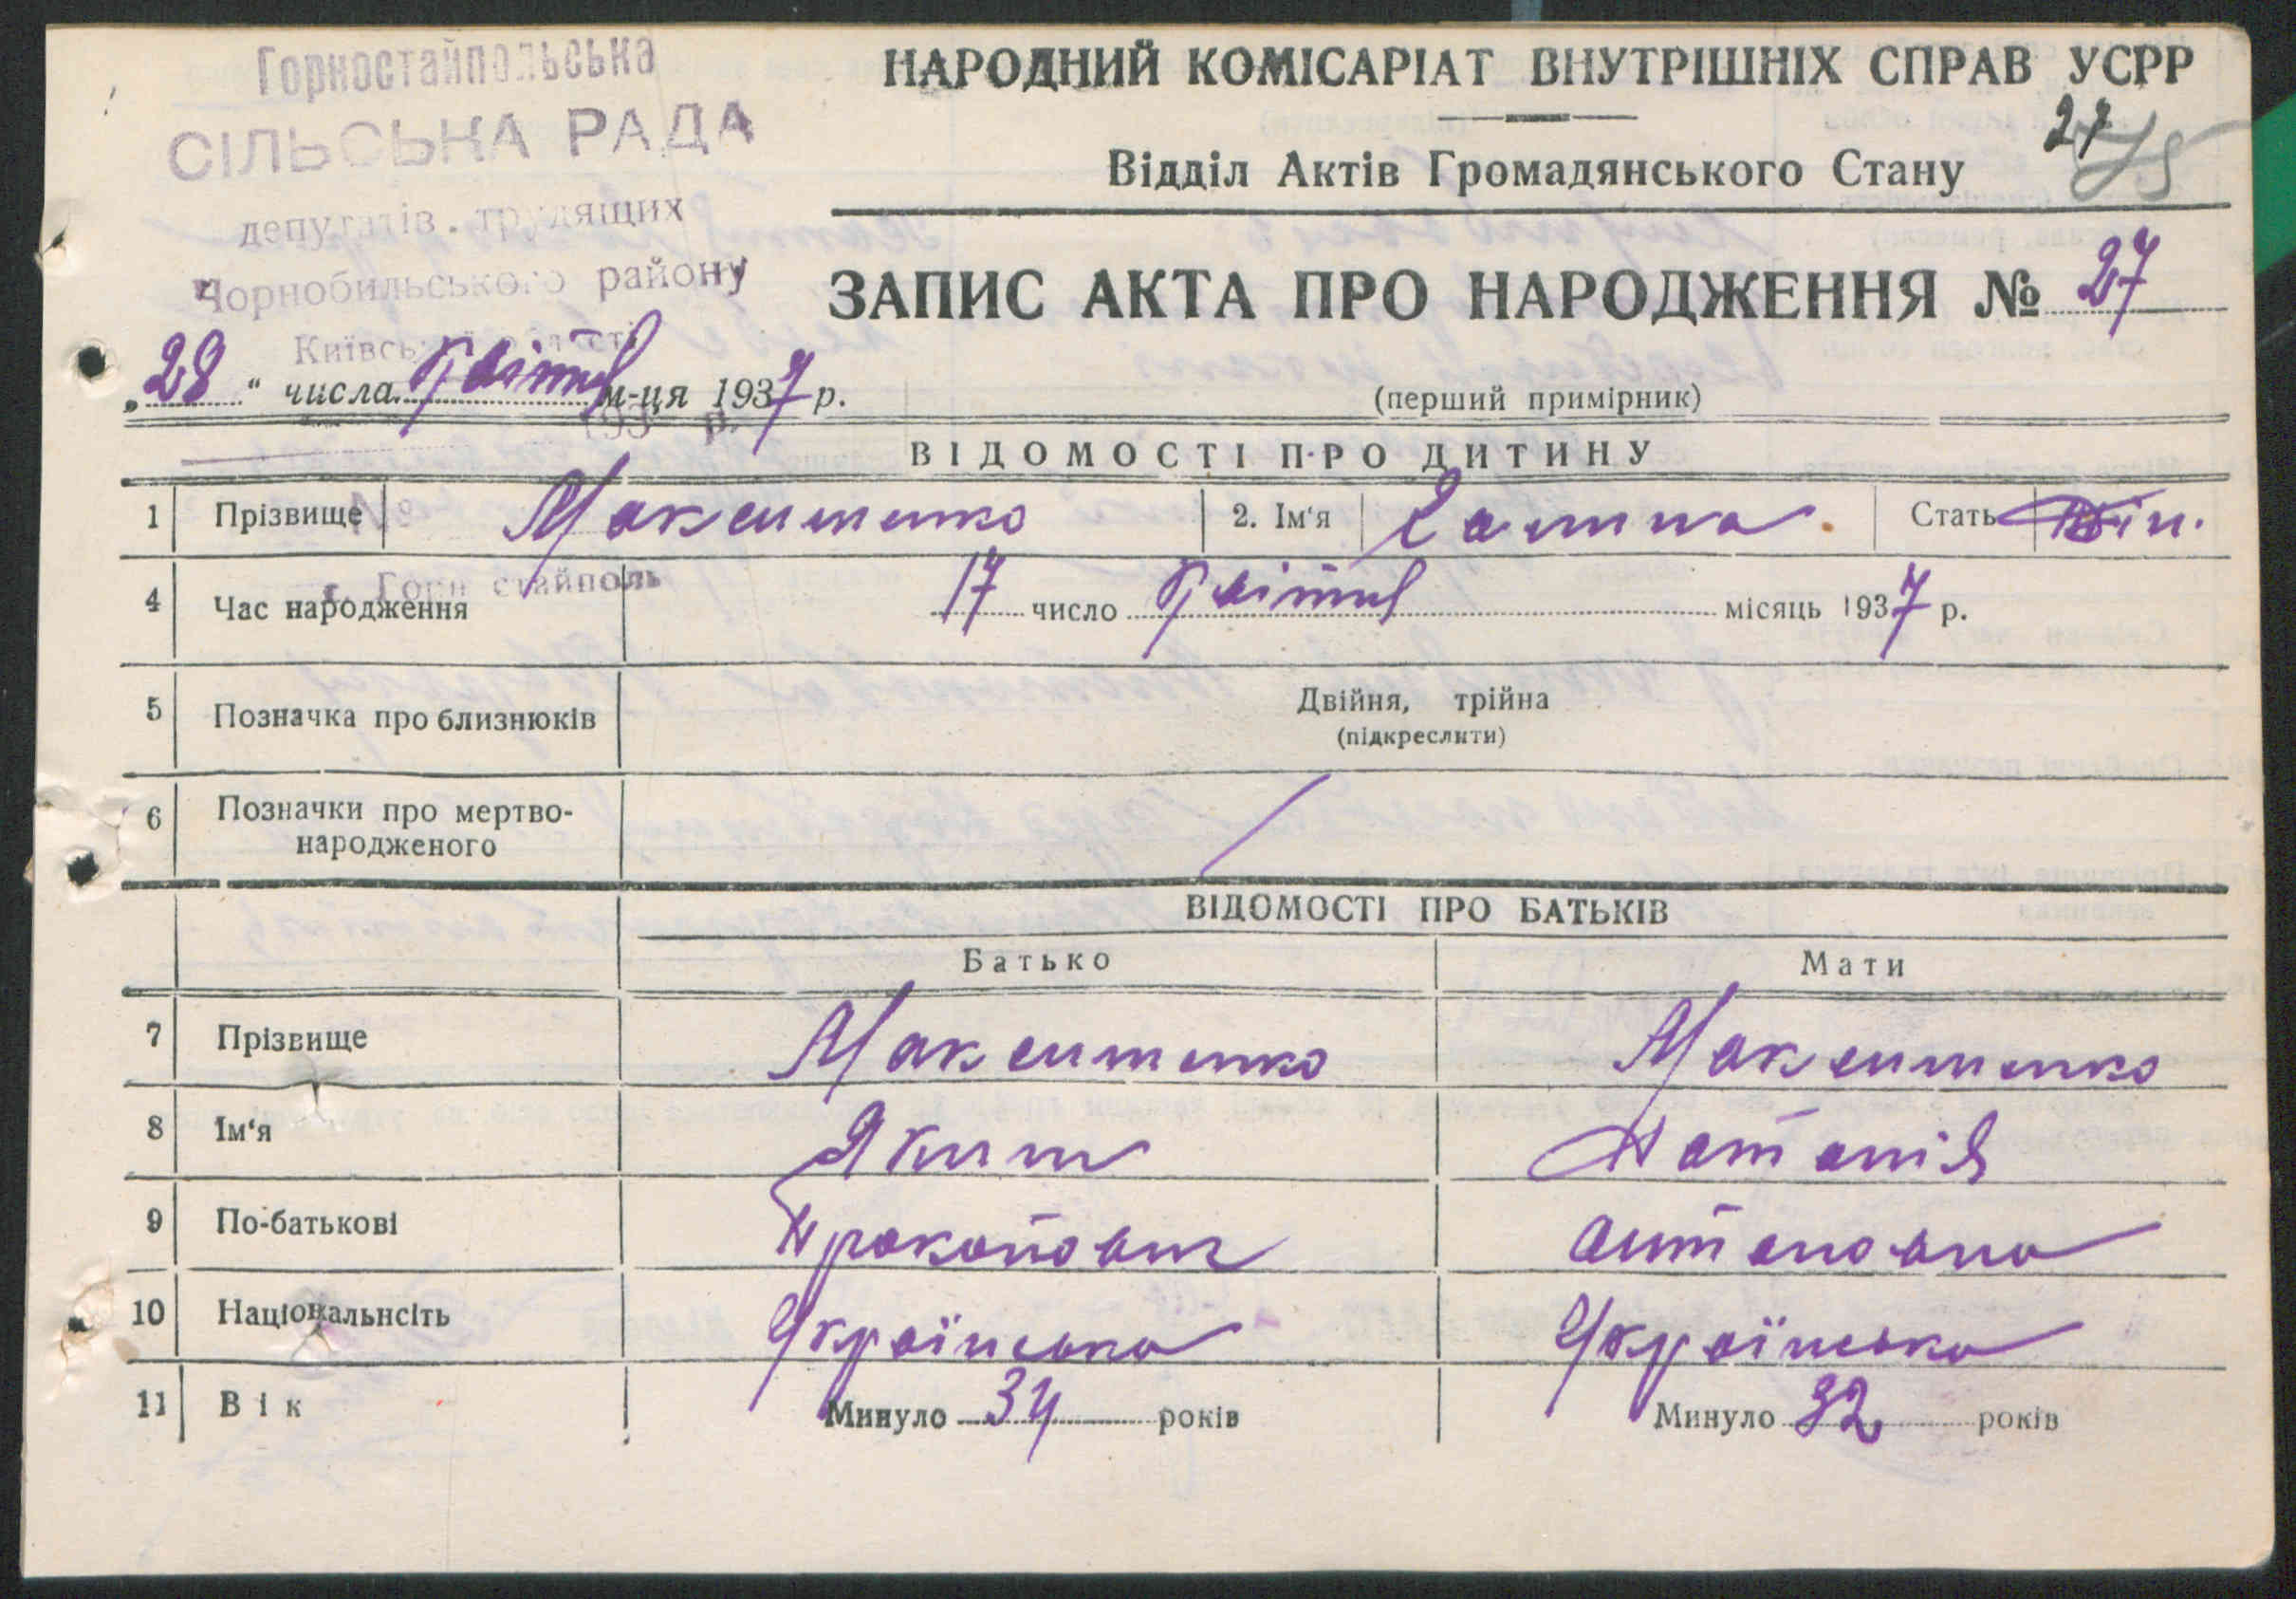 Горностайпольська
СІЛЬСЬКА РАДА
депутатів трудящих
Чорнобильського району
Київської області
193 р.
№
с. Горностайполь
НАРОДНИЙ КОМІСАРІАТ ВНУТРІШНІХ СПРАВ УСРР
27
Відділ Актів Громадянського Стану
ЗАПИС АКТА ПРО НАРОДЖЕННЯ № 27
„28" числа Квітня м-ця 1937 р.
(перший примірник)
ВІДОМОСТІ ПРО ДИТИНУ
1 Прізвище Максименко 2. Ім'я Галина. Стать жін.
4 Час народження 17 число Квітня місяць 1937 р.
5 Позначка про близнюків Двійня, трійна
(підкреслити)
6 Позначки про мертво-
народженого
ВІДОМОСТІ ПРО БАТЬКІВ
Батько Мати
7 Прізвище Максименко Максименко
8 Ім'я Яким Наталія
9 По-батькові Прокопович Антоновна
10 Національнсіть Українська Українська
11 Вік Минуло 34 років Минуло 32 років